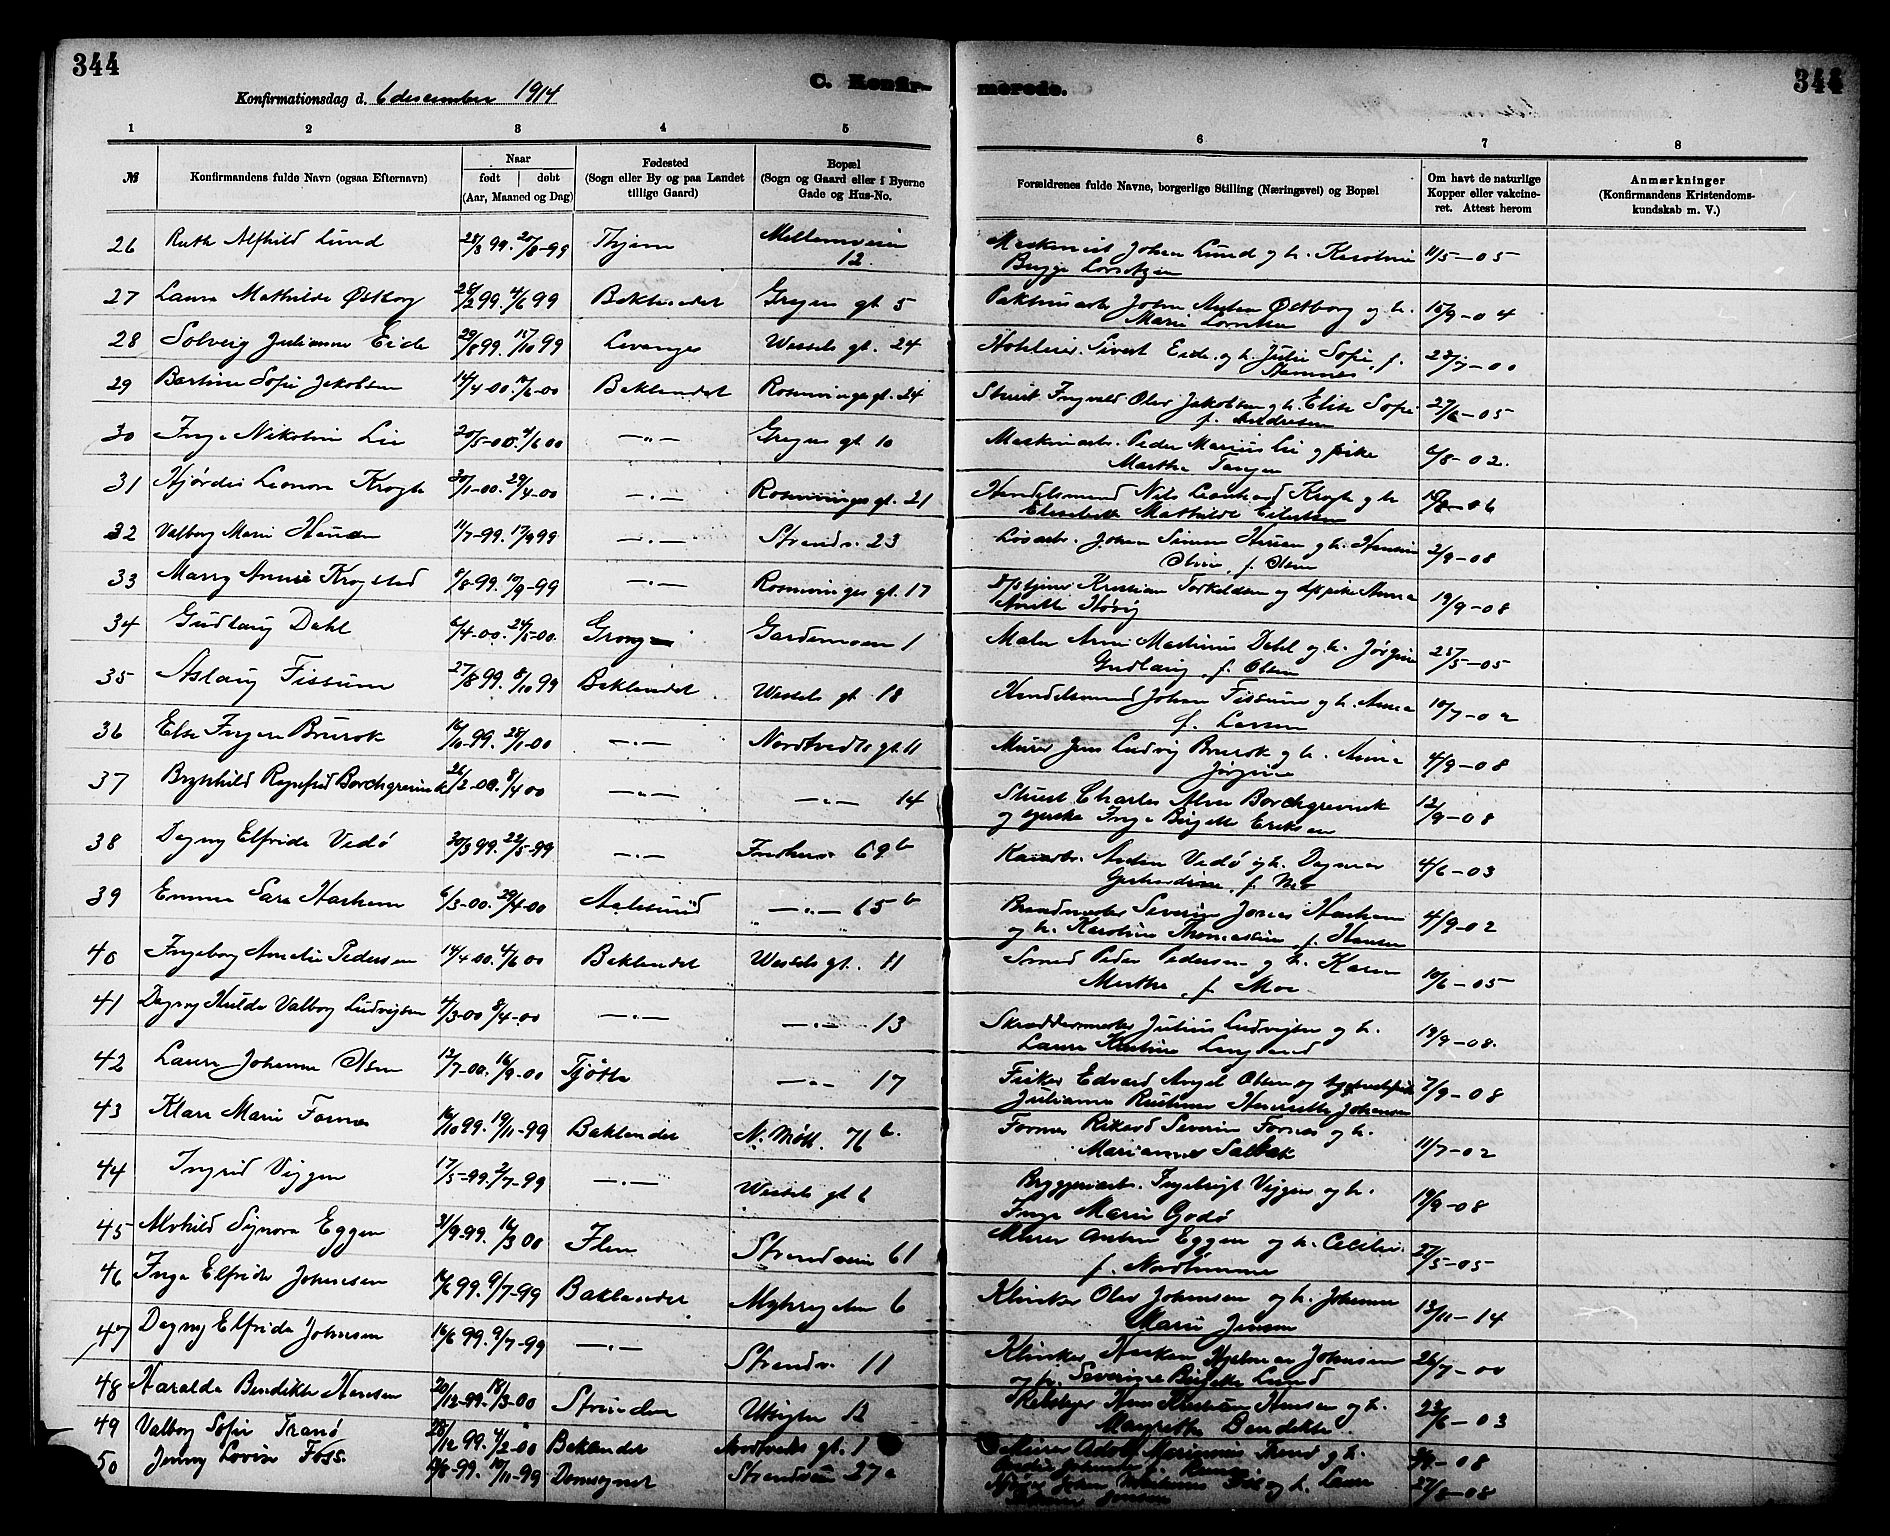 344
344
Konfirmationsdag d. 6 desember 1914
C. Konfir-
merede.
1 2 3 4 5 6 7 8
№ Konfirmandens fulde Navn (ogsaa Efternavn)
Naar
født døbt
(Aar, Maaned og Dag)
Fødested
(Sogn eller By og paa Landet
tillige Gaard)
Bopæl
(Sogn og Gaard eller i Byerne
Gade og Hus-No.
Forældrenes fulde Navne, borgerlige Stilling (Næringsvei) og Bopæl
Om havt de naturlige
Kopper eller vakcine-
ret. Attest herom
Anmærkninger
(Konfirmandens Kristendoms-
kundskab m. V.)
26 Ruth Alfhild Lund 28/3 99. 20/8-99 Mellemveien Maskinist Johan Lund og h. Karoline 11/5-05
12. Bugge Lorntzen
27 Laura Mathilde Østborg 28/2 99. 4/6 99 Baklandet Gregus gt. 5 Pakhusarb. John Anton Østborg og h. 15/9-04
Marie Lorntsen
28 Solveig Julianne Eide 29/8 99. 15/10 99 Levanger Wessels gt. 24 Sivert Eide og h. Julie Sofie, f. 28/7-00
29 Bartine Sofie Jakobsen 14/4-00. 17/6-00 Baklandet Rosenvinges gt. 24 Stuert Ingvald Olov Jakobsen og h. Elise Sofie 27/6-05
f. Andresen
30 Inga Nikoline Lie 20/5-00. 4/6 00 —"— Gregus gt. 10 Maskinarb. Peder Marius Lie og pike 6/8-02.
Martha Tangen
31 Hjørdis Leonora Krogh 30/1-00. 29/4-00 —"— Rosenvinges gt. 21 Handelsmand Nils Leonhard Krogh og h. 18/8-06
Elisabeth Mathilde Eilertsen
32 Valborg Marie Hansen 11/7-99. 17/9 99 —"— Strandv. 23 Løsarb. Johan Simon Hansen og h. Hansine 2/9-08
Oline, f. Olsen
33 Marry Annie Krogstad 8/8-99. 10/9-99 —"— Rosenvinges gt. 17 Kristian Torkeldsen og Anna 19/9-08
Anette Høvig
34 Gudlaug Dahl 6/4-00. 24/5-00. Grong Gardemoen 1 Maler Arne Martinus Dahl og h. Jørgine 25/5-05
Gudlaug, f. Olsen
35 Aslaug Fissum 27/8 99. 8/10 99 Baklandet Wessels gt 18 Handelsmand Johan Fissum og h. Anna 10/7-02
f. Larsen
36 Else Ingera Brurok 16/10-99. 28/1-00 —"— Nordtvedts gt. 11 Murer Jens Ludvig Brurok og h. Anna 4/9-08
Jørgine
37 Brynhild Ragnfrid Borchgrevink 26/2-00. 8/4 00 —"— —"— 14 Stuert Charles Alva Borchgrevink 12/9-08
og Inga Birgitte Eriksen
38 Dagny Elfrida Vedø 30/3 99. 22/5-99 —"— Innherv. 69 b Anton Vedø og h. Dagmar 4/6-03
Gerhardine, f. Moe
39 Emma Sara Harham 6/3-00. 29/4-00 Aalesund —"— 65 b Brandmester Severin Jonas Harham 4/9-02
og h. Karoline Thomassine, f. Hansen
40 Ingeborg Amalie Pedersen 14/4 00. 4/6 00 Baklandet Wessels gt. 11 Smed Peder Pedersen og h. Karen 10/6-05
Marthe, f. Moe
41 Dagny Hulda Valborg Ludvigsen 4/3-00 8/4-00 —"— —"— 13 Skræddermester Julius Ludvigsen og h. 19/9-08.
Laura Kristine
42 Laura Johanna Olsen 12/7-00. 16/9-00 Tjøtta —"— 17 Fisker Edvard Angel Olsen og 7/9-08
Julianna Henriette Johansen
43 Klara Marie Fornes 16/10 99. 19/11-99 Baklandet N. Møll. 76 b. Former Rikard Severin Fornes og h. 11/7-02
Marianne Salbak
44 Ingrid Viggen 17/5-99. 2/7-99 —"— Wessels gt 6 Bryggeriarb. Ingebrigt Viggen og h. 19/9-08
Inga Marie Godø
45 Alvhild Synora Eggen 31/9 99. 16/3 00 Ilen Strandveien 61 Murer Anton Eggen og h. Cecilie 29/5-05
f. Nordtømme
46 Inga Elfrida Johansen 16/6 99. 9/7-99 Baklandet 6 Klinker Olov Johansen og h. Johanna 13/11-14
Marie Jensen
47 Dagny Elfrida Johnsen 16/6 99. 9/7-99 —"— Strandv. 11 Klinker Haakon Hjalmar Johnsen 26/7-00
og h. Severine Birgitte Lund
48 Haralda Bendikte Hansen 20/12-99. 18/3-00 Strinden Utsigten 12 Hans Kristian Hansen og h. 23/6-03
Margrethe Bendikte
49 Valborg Sofie Tranø 28/12 99. 4/2-00 Baklandet Nordtvedts gt. 1 Murer Adolf og h. 9-08
50 Jenny Lovise Foss. 8-99. 10/11-99 Domsognet Strandveien 27 a og h. Laura 27/8-08